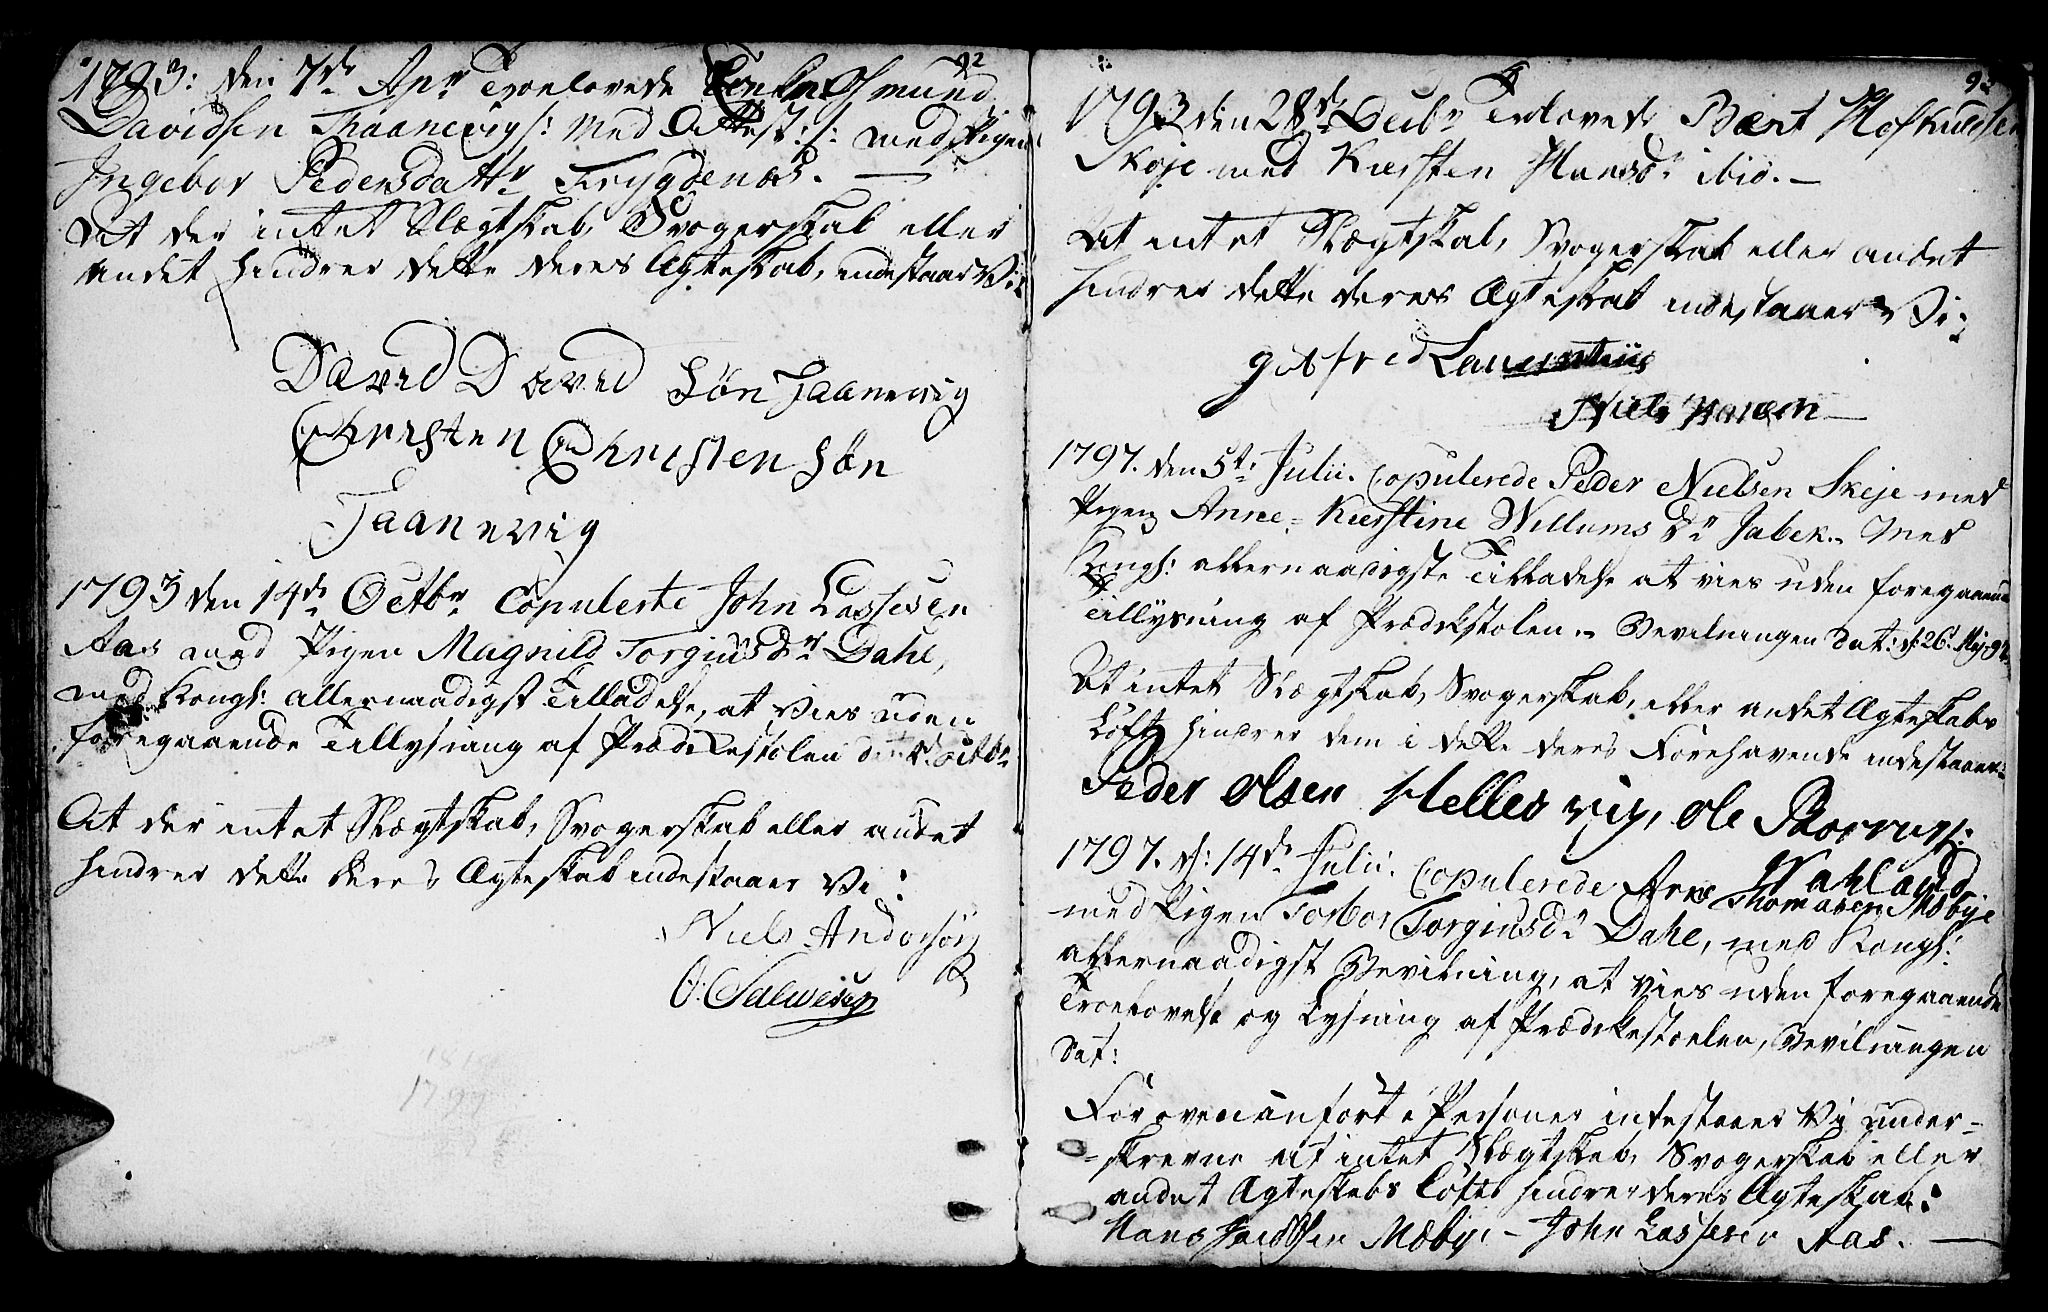 92
1793: den 7de Apr Troelovede Osmund
Davidsen Thaanevigs: med Attest: /: med Pigen
Ingebor Pedersdattr Trygdenæs. —
At der intet Slægtskab, Svogerskab eller
andet hindrer dette deres Ægteskab, indestaar Vi:
David David Søn Taanevig
Christen Christen Søn
Taanevig
1793 den 14de Octbr Copulerte John Lassesen
Aas med Pigen Magnild Torgiusdr Dahl,
med Kongl: allernaadigst Tilladelse, at Vies uden
foregaaende Tillysning af Prædikestolen Octbr
At der intet Slægtskab, Svogerskab eller andet
hindrer dette deres Ægteskab indestaaer Vi:
Niels Andorsøn
O: Salvesen
93
1793 den 28de Decbr Trolovede Bært Hofkuldsen
Skeje med Kiersten Hansdr ibid. —
At intet Slægtskab, Svogerskab eller andet
hindrer dette deres Ægteskab indestaaer Vi:
gutfred Laurentius
Niels Hansen —
1797. den 5te Julii. Copulerede Peder Nielsen Skeje med
Pigen Anne-Kierstine Willumsdr Jabek. Med
Kongl: allernaadigste Tilladelse at vies uden foregaaende
Tillysning af Prædikstolen. Bevilningen dat: d: 26. Maj 97.
At intet Slægtskab, Svogerskab, eller andet Ægteskabs
Løfte hindrer dem i dette deres Forehavende indestaaer:
Peder Olsen Hellesvig, Ole
Vahland
1797. d: 14de Julii. Copulerede Arne Thomasen Mæbye
med Pigen Torbor Torgiusdr Dahl, med Kongl:
allernaadigst Bevilning, at vies uden foregaaende
Troelovelse og Lysning af Prædikestoelen, Bevilningen
dat:
For ovenanførte Personer indestaaer Vi under-
-skrevne at intet Slægtskab, Svogerskab eller
andet Ægteskabs Løfte hindrer deres Ægteskab:
Hans Jacobsen Mæby. – John Lassesen Aas. —